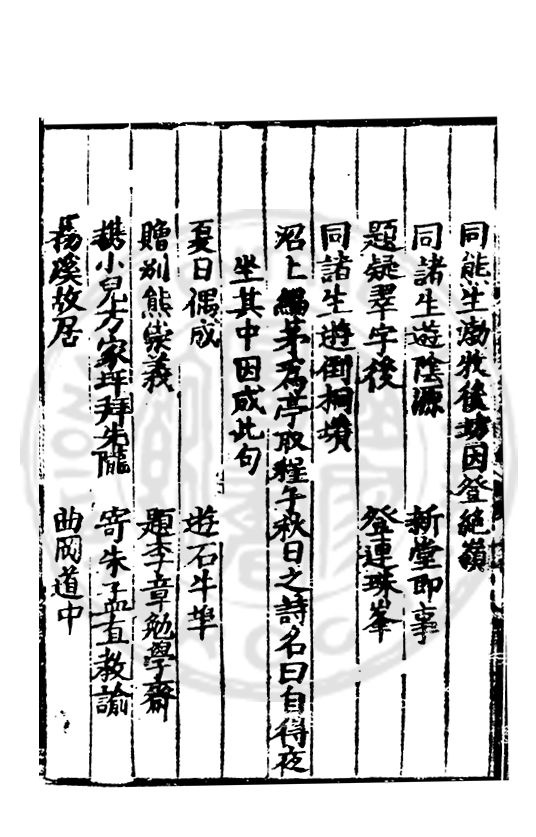 同熊生勸牧後坊因登絶嶺
同諸生遊陰源 新堂即事
題疑翠字後 登連珠峯
同諸生遊倒桐墳
沼上編茅為亭取程子秋日之詩名曰自得夜
坐其中因成此句
夏日偶成 遊石牛埠
贈別熊崇義 題李章勉學齋
携小兒方家坪拜先隴 寄朱孟直教諭
楊溪故居 曲岡道中